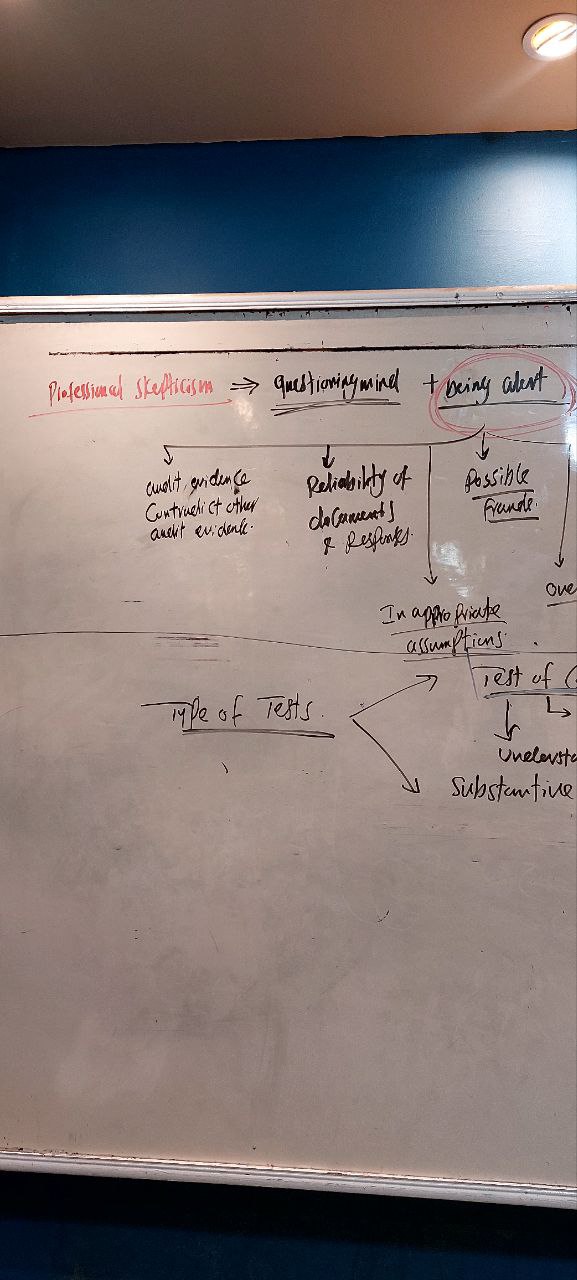 Professional Skepticism ⇒ questioning mind + being alert,
audit evidence
Contradict other
audit evidence.
Reliability of
documents
& Responses.
Possible
Fraude.
Inappropriate
assumptions.
Ove
Type of Tests.
Test of C
Understa
Substantive